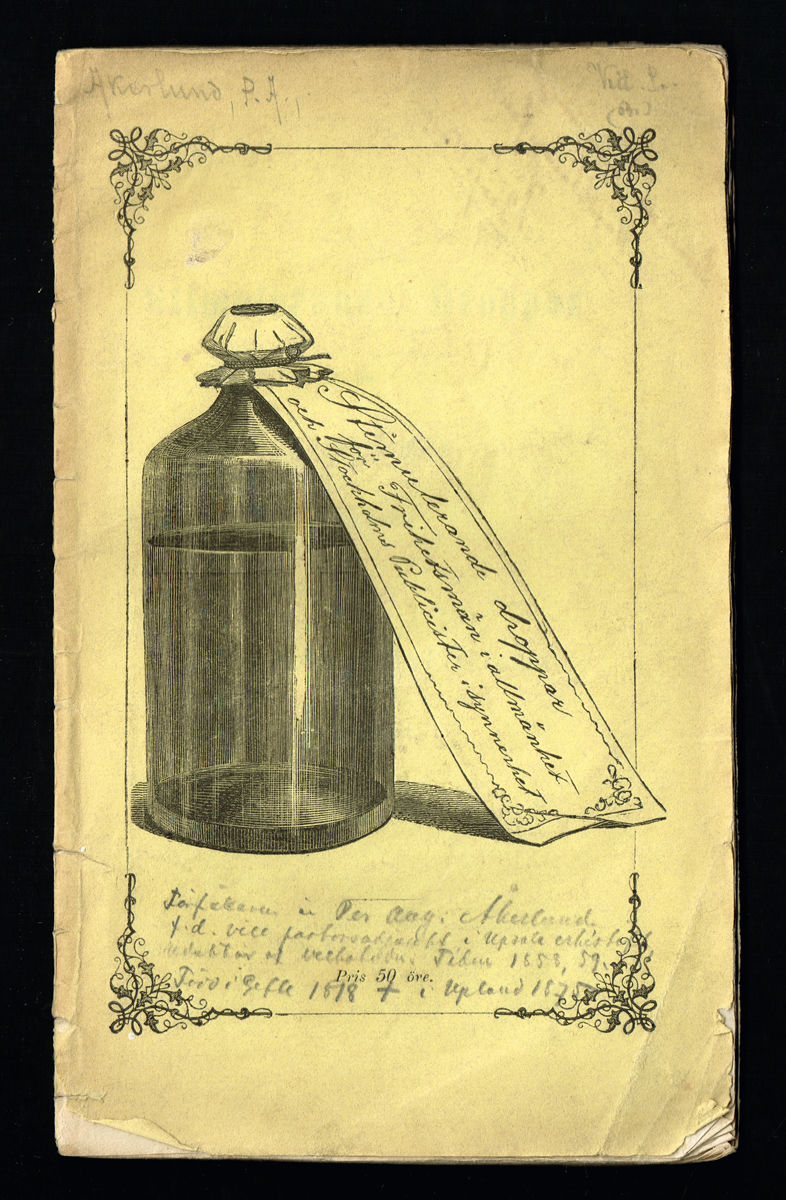 Åkerlund, P. A.,
Stimulerande droppar
för Frihetsmän i allmänhet
och Stockholms Publicister i synnerhet
Författaren är Per Aug. Åkerlund
f.d. vice pastorsadjunkt i Upsala
redaktör af veckobladet Tiden 1858, 59.
Pris 50 öre.
Född i Gefle 1818 † i Upland